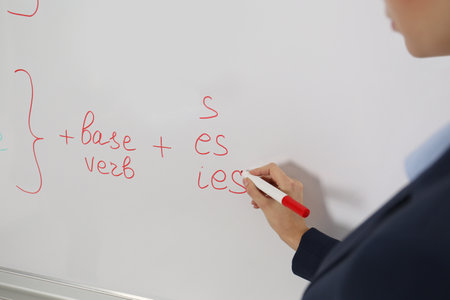 s
+ base + es
verb
ies